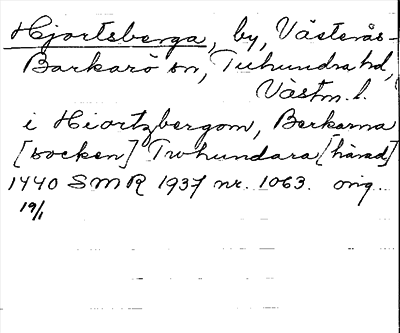 Hjortsberga, by, Västerås-
Barkarö sn, Tuhundra hd,
Västm. l.
i Hiortzbergom, Barkarna
[socken] Twhundara [härad]
1440 SMR 1937 nr. 1063. orig.
19/1